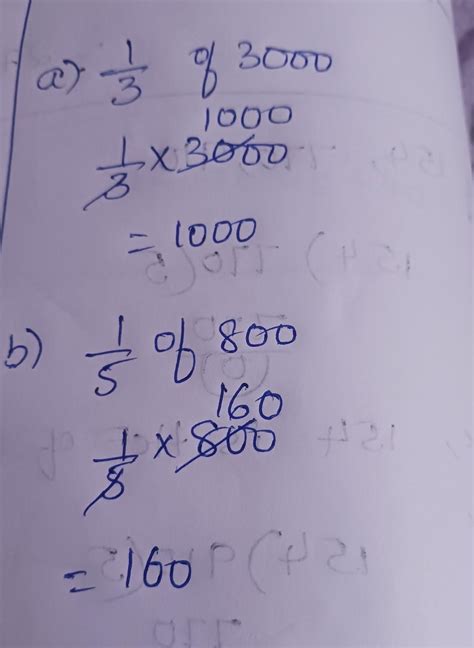 a) 1/3 of 3000
1000
1/3 × 3000
= 1000
b) 1/5 of 800
160
1/5 × 800
= 160